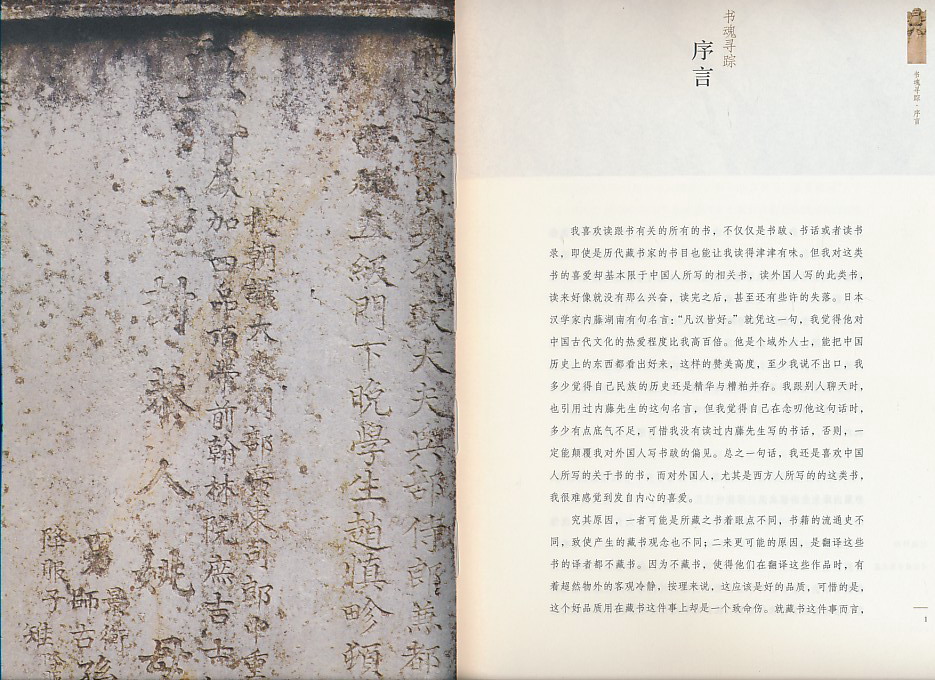 大夫兵部侍郎兼都
五級門下晚學生趙慎畛頓
朝議大夫刑部廣東司郎中重
加四品頂帶前翰林院庶吉士
封恭人姚母
師古孫
降服子
书魂寻踪
序言
书魂寻踪·序言
我喜欢读跟书有关的所有的书，不仅仅是书跋、书话或者读书
录，即使是历代藏书家的书目也能让我读得津津有味。但我对这类
书的喜爱却基本限于中国人所写的相关书，读外国人写的此类书，
读来好像就没有那么兴奋，读完之后，甚至还有些许的失落。日本
汉学家内藤湖南有句名言：“凡汉皆好。”就凭这一句，我觉得他对
中国古代文化的热爱程度比我高百倍。他是个域外人士，能把中国
历史上的东西都看出好来，这样的赞美高度，至少我说不出口，我
多少觉得自己民族的历史还是精华与糟粕并存。我跟别人聊天时，
也引用过内藤先生的这句名言，但我觉得自己在念叨他这句话时，
多少有点底气不足，可惜我没有读过内藤先生写的书话，否则，一
定能颠覆我对外国人写书跋的偏见。总之一句话，我还是喜欢中国
人所写的关于书的书，而对外国人，尤其是西方人所写的的这类书，
我很难感觉到发自内心的喜爱。
究其原因，一者可能是所藏之书着眼点不同，书籍的流通史不
同，致使产生的藏书观念也不同；二来更可能的原因，是翻译这些
书的译者都不藏书。因为不藏书，使得他们在翻译这些作品时，有
着超然物外的客观冷静，按理来说，这应该是好的品质，可惜的是，
这个好品质用在藏书这件事上却是一个致命伤。就藏书这件事而言，
1